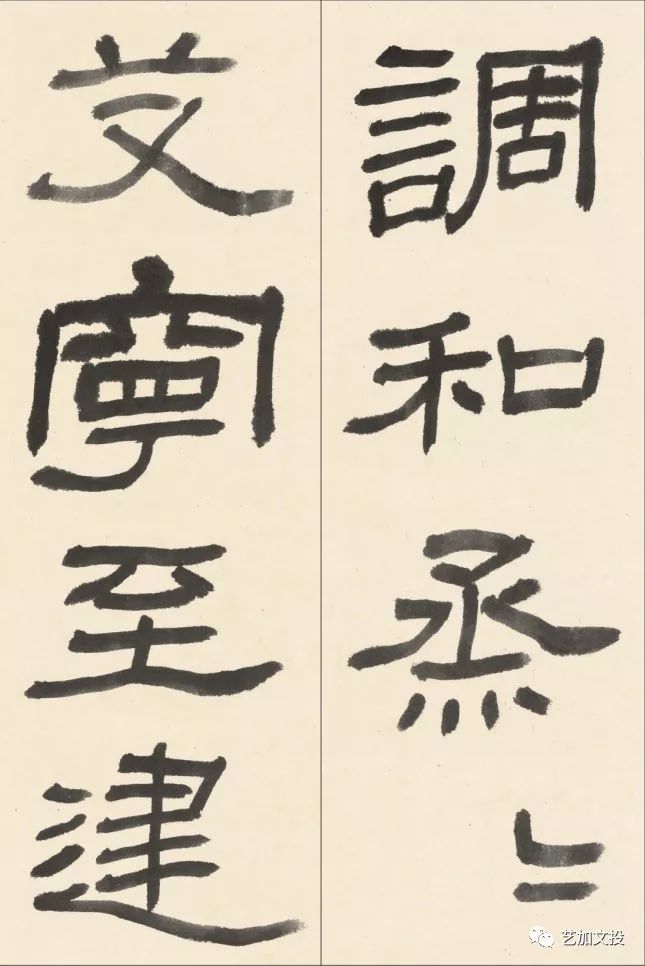 調和烝〻
艾寧至建
艺加文投